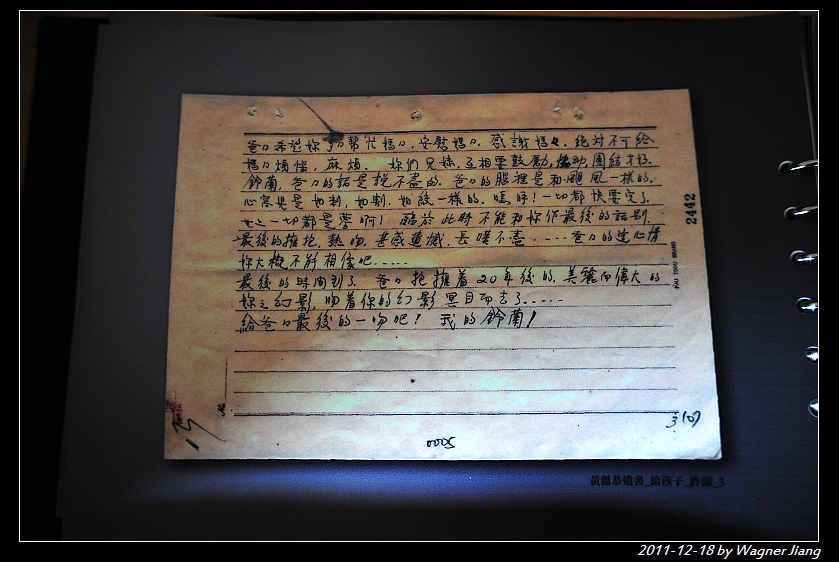 爸々希望妳多々幫忙媽々，安慰媽々，感謝媽々，絕対不可給
媽々煩惱，麻煩。妳們兄妹，互相要鼓勵，協助，團結才好。
鈴蘭，爸々的話是說不盡的，爸々的腦裡是和颱風一樣的，
心窩是如刺，如割，如絞一樣的。嗚呼！一切都快要完了。
一切都是夢啊！臨於此時不能和妳作最後的話別，
最後的擁抱，熱吻，甚感遺憾，長嘆不盡.....爸々的這心情
妳大概不能想像吧.....
最後的時間到了，爸々抱擁着20年後的，美麗而偉大的
妳之幻影，吻着你的幻影冥目而去了.....
給爸々最後的一吻吧！我的鈴蘭！
2442
3(0)
0005
黃溫恭遺書_給孩子_鈴蘭_3
2011-12-18 by Wagner Jiang